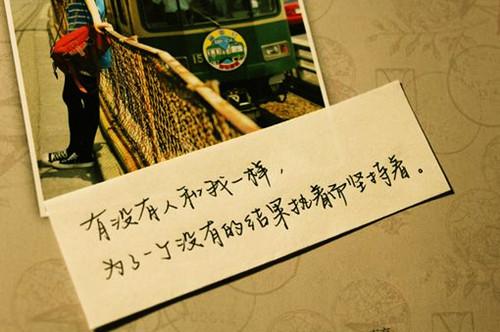 15
有没有人和我一样，
为了一个没有的结果执着而坚持着。